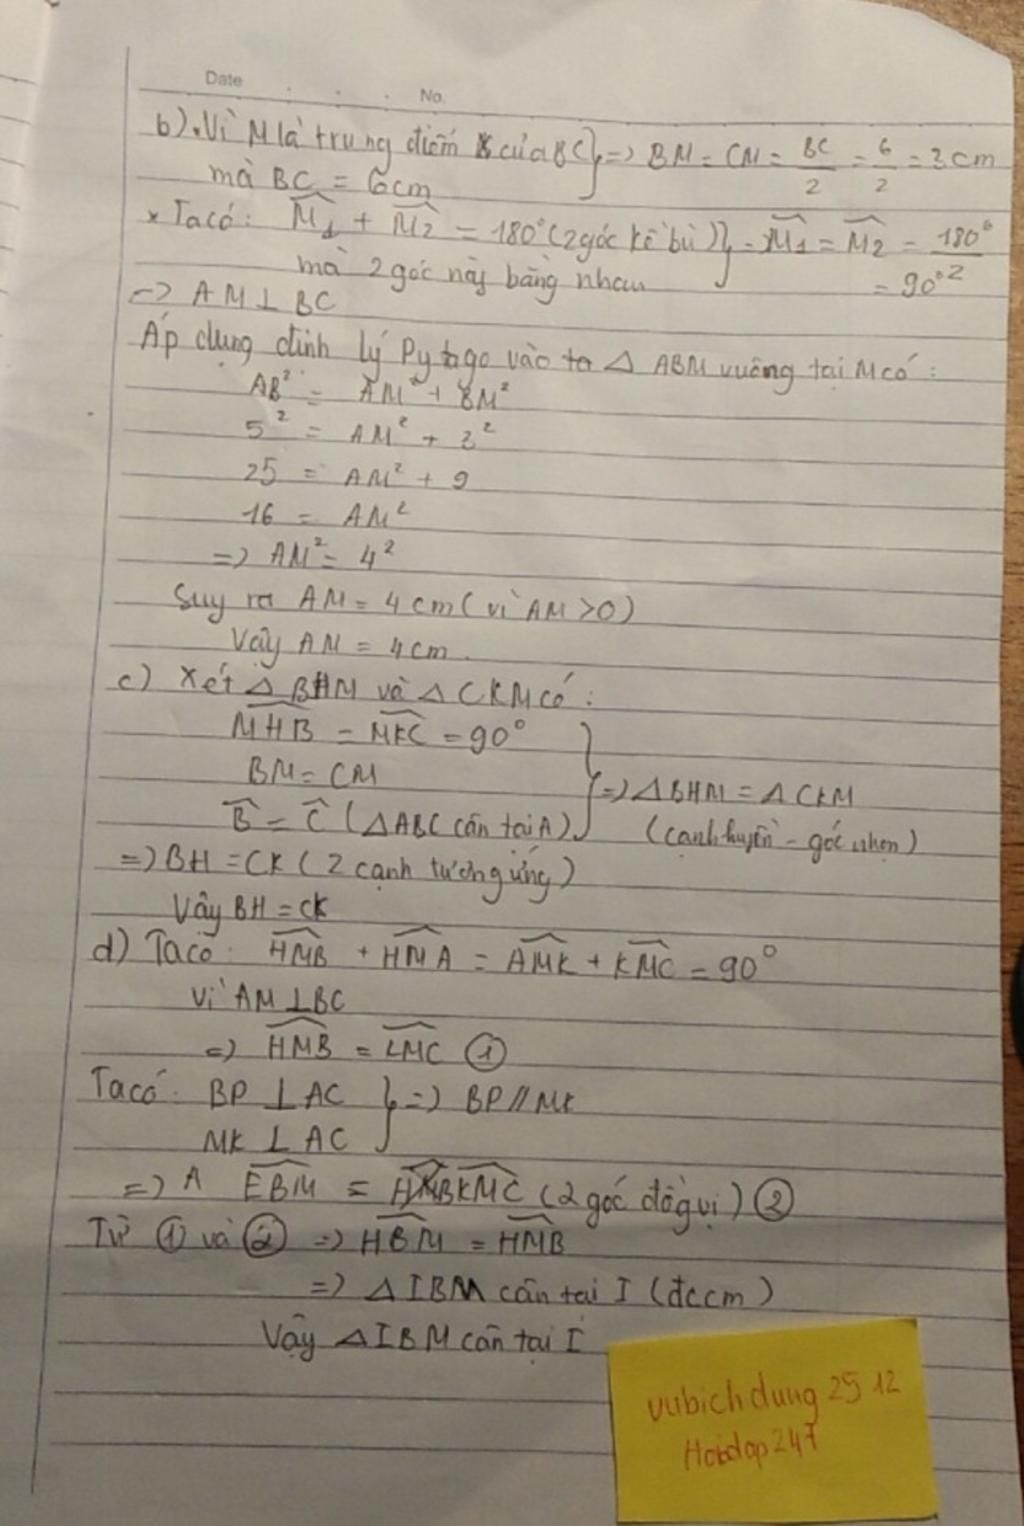 Date . . . No.
b). Vì M là trung điểm của BC } => BM = CM = BC/2 = 6/2 = 3 cm
mà BC = 6cm
* Ta có: M̂1 + M̂2 = 180° (2 góc kề bù) } - M̂1 = M̂2 = 180°/2
mà 2 góc này bằng nhau = 90°
=> AM ⊥ BC
Áp dụng định lý Pytago vào ta △ ABM vuông tại M có:
AB² = AM² + BM²
5² = AM² + 3²
25 = AM² + 9
16 = AM²
=> AM² = 4²
Suy ra AM = 4 cm (vì AM > 0)
Vậy AM = 4cm.
c) Xét △ BHM và △ CKM có:
MHB = MKC = 90°
BM = CM } => △BHM = △CKM
B̂ = Ĉ (△ABC cân tại A). (cạnh huyền - góc nhọn)
=> BH = CK (2 cạnh tương ứng)
Vậy BH = CK
d) Ta có: HMB + HMA = AMK + KMC = 90°
Vì AM ⊥ BC
=> HMB = KMC ①
Ta có: BP ⊥ AC } => BP // MK
MK ⊥ AC
=> A EBM = KMC (2 góc đồng vị) ②
Từ ① và ② => HBM = HMB
=> △ IBM cân tại I (đccm)
Vậy △IBM cân tại I
vubichdung 25 12
Hoidap247